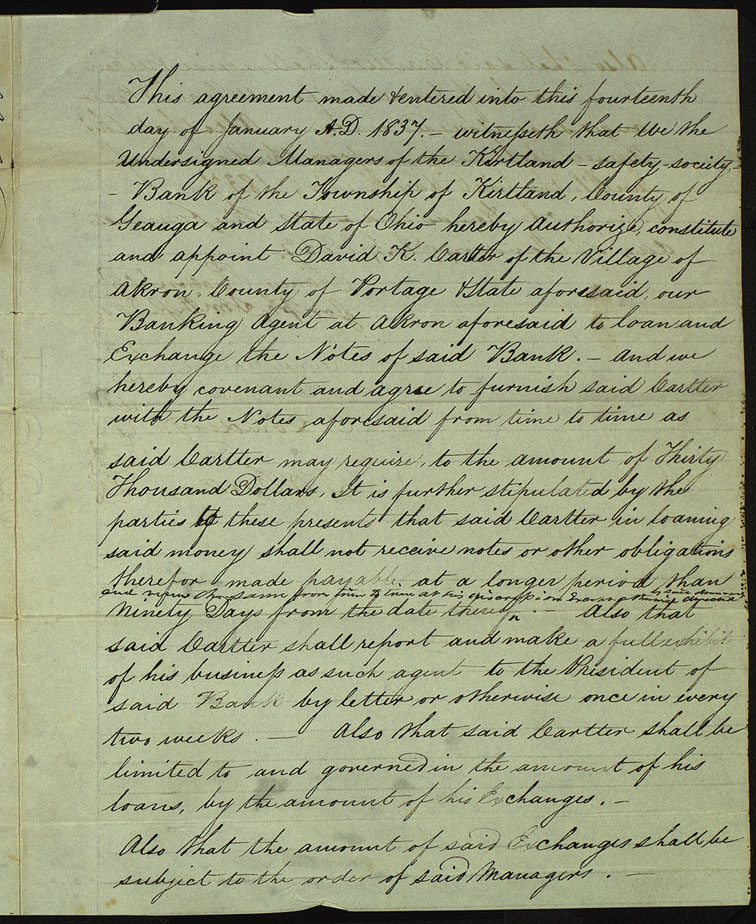 This agreement made & entered into this fourteenth
day of January A.D. 1837. – witnesseth that We the
Undersigned Managers of the Kirtland – safety – society –
– Bank of the Township of Kirtland, County of
Geauga and State of Ohio hereby Authorize, constitute
and appoint David K. Cartter of the Village of
Akron, County of Portage & State aforesaid, our
Banking Agent at Akron aforesaid to loan and
Exchange the Notes of said Bank. – and we
hereby covenant and agree to furnish said Cartter
with the Notes aforesaid from time to time as
said Cartter may require, to the amount of Thirty
Thousand Dollars, It is further stipulated by the
parties to these presents that said Cartter in loaning
said money shall not receive notes or other obligations
therefor made payable at a longer period than
and renew the same from time to time at his discretion except otherwise directed
Ninety Days from the date thereof. – Also that
said Cartter shall report and make a full exhibit
of his business as such agent to the President of
said Bank by letter or otherwise once in every
two weeks. – Also that said Cartter shall be
limited to and governed in the amount of his
loans, by the amount of his Exchanges. –
Also that the amount of said Exchanges shall be
subject to the order of said Managers. –